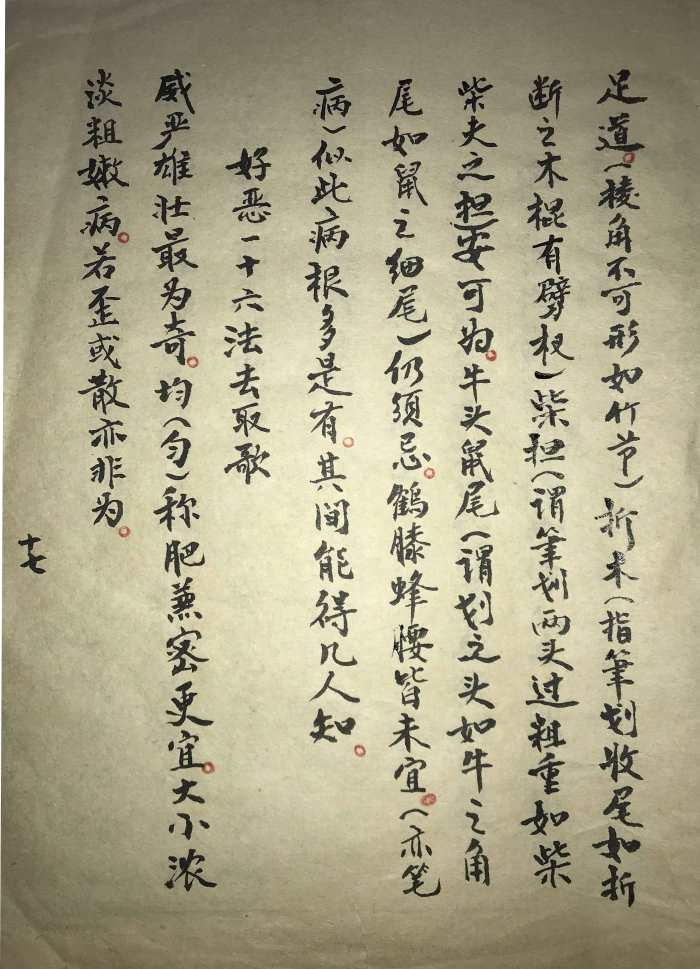 足道。(棱角不可形如竹节)折木(指筆划收尾如折
断之木棍有劈杈)柴担(谓筆划两头过粗重如柴
柴夫之担安可为。牛头鼠尾(谓划之头如牛之角
尾如鼠之细尾)仍须忌。鶴膝蜂腰皆未宜。(亦笔
病)似此病根多是有。其间能得几人知。
好恶一十六法去取歌
威严雄壮最为奇。均(匀)称肥兼密更宜。大小浓
淡粗嫩病。若歪或散亦非为。
十七